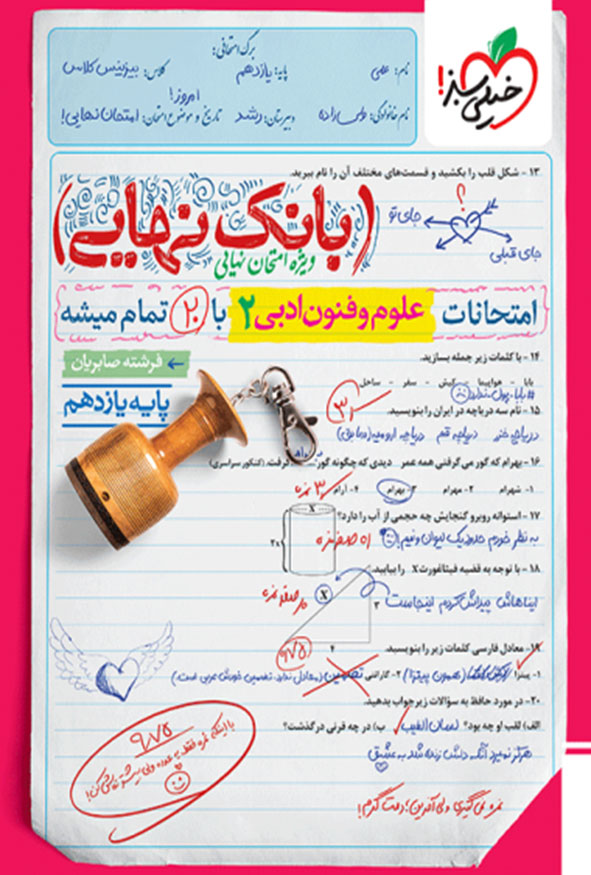 خیلی سبز!
برگ امتحانی:
نام: پایه: یازدهم کلاس: بیزینس کلاس
امروز!
نام خانوادگی: دبیرستان: رشد تاریخ و موضوع امتحان: امتحان نهایی!
۱۳ - شکل قلب را بکشید و قسمت‌های مختلف آن را نام ببرید.
؟
جای تو
جای قبلی
(بانک نهایی)
ویژه امتحان نهایی
امتحانات علوم و فنون ادبی ۲ با ۲۰ تمام میشه
فرشته صابریان
پایه یازدهم
۱۴ - با کلمات زیر جمله بسازید.
بابا - هواپیما - کیش - سفر - ساحل
#بابا_پول_ندارد
۳
۱۵ - نام سه دریاچه در ایران را بنویسید.
دریاچه خزر دریاچه قم دریاچه ارومیه (سابق)
۱۶ - بهرام که گور می گرفتی همه عمر دیدی که چگونه گور گرفت. (کنکور سراسری)
۱- شهرام ۲- مهرام ۳- بهرام ۴- آرام
۳ نمره
۱۷ - استوانه روبرو گنجایش چه حجمی از آب را دارد؟
به نظر خودم حدود یک لیوان و نیم!
X
2x
۱۸ - با توجه به قضیه فیثاغورث X را بیابید.
ایناهاش پیداش کردم اینجاست
X
۳
۴
۹/۷۵
۱۹ - معادل فارسی کلمات زیر را بنویسید.
۱- پیتزا (همون پیتزا) ۲- گارانتی تضمین (معادل ندارد. تضمین خودش عربی است.)
۲۰- در مورد حافظ به سؤالات زیر جواب بدهید.
الف) لقب او چه بود؟ لسان الغیب ب) در چه قرنی درگذشت؟
هرگز نمیرد آنکه دلش زنده شد به عشق
۹/۷۵
با اینکه نمره فقط یه عدده ولی بیشتر تلاش کن!
نمره نمی‌گیری ولی آفرین؛ دمت گرم!